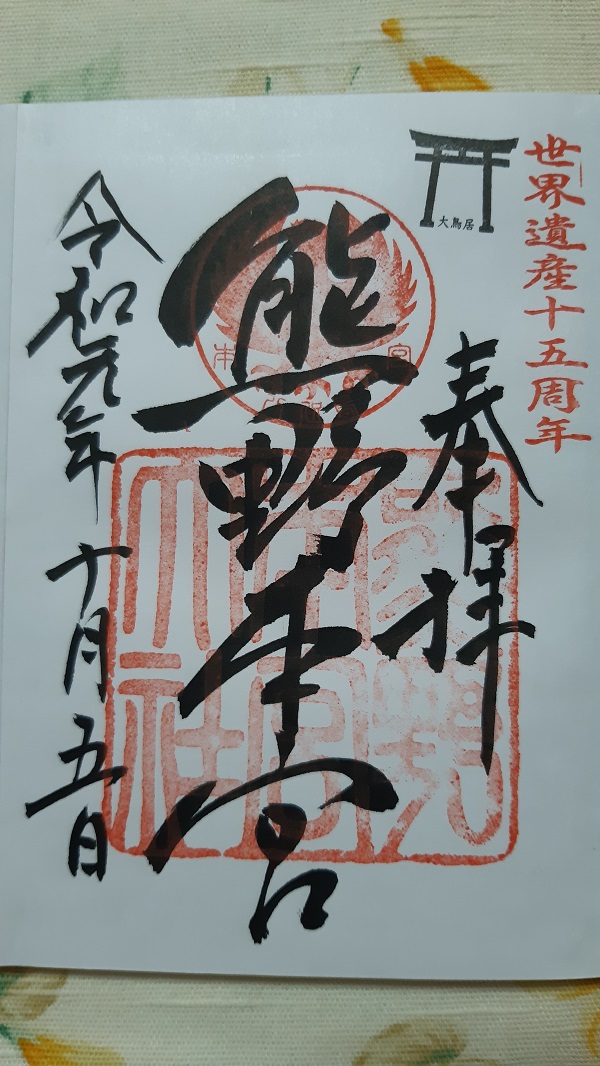 世界遺産十五周年
大鳥居
奉拝
熊野本宮
熊野本宮大社
令和元年十月五日